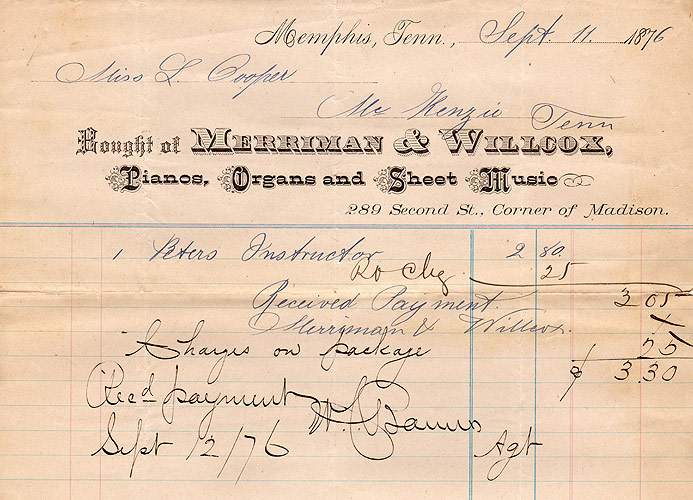 Memphis, Tenn., Sept. 11. 1876
Miss L Cooper
Mc Kenzie Tenn
Bought of MERRIMAN & WILLCOX,
Pianos, Organs and Sheet Music
289 Second St., Corner of Madison.
1 Peters Instructor 2 80.
Rd Chg 25
Received Payment 3 05
Merriman & Willcox.
Charges on package 25
$ 3.30
Recd payment
Sept 12/76 Agt